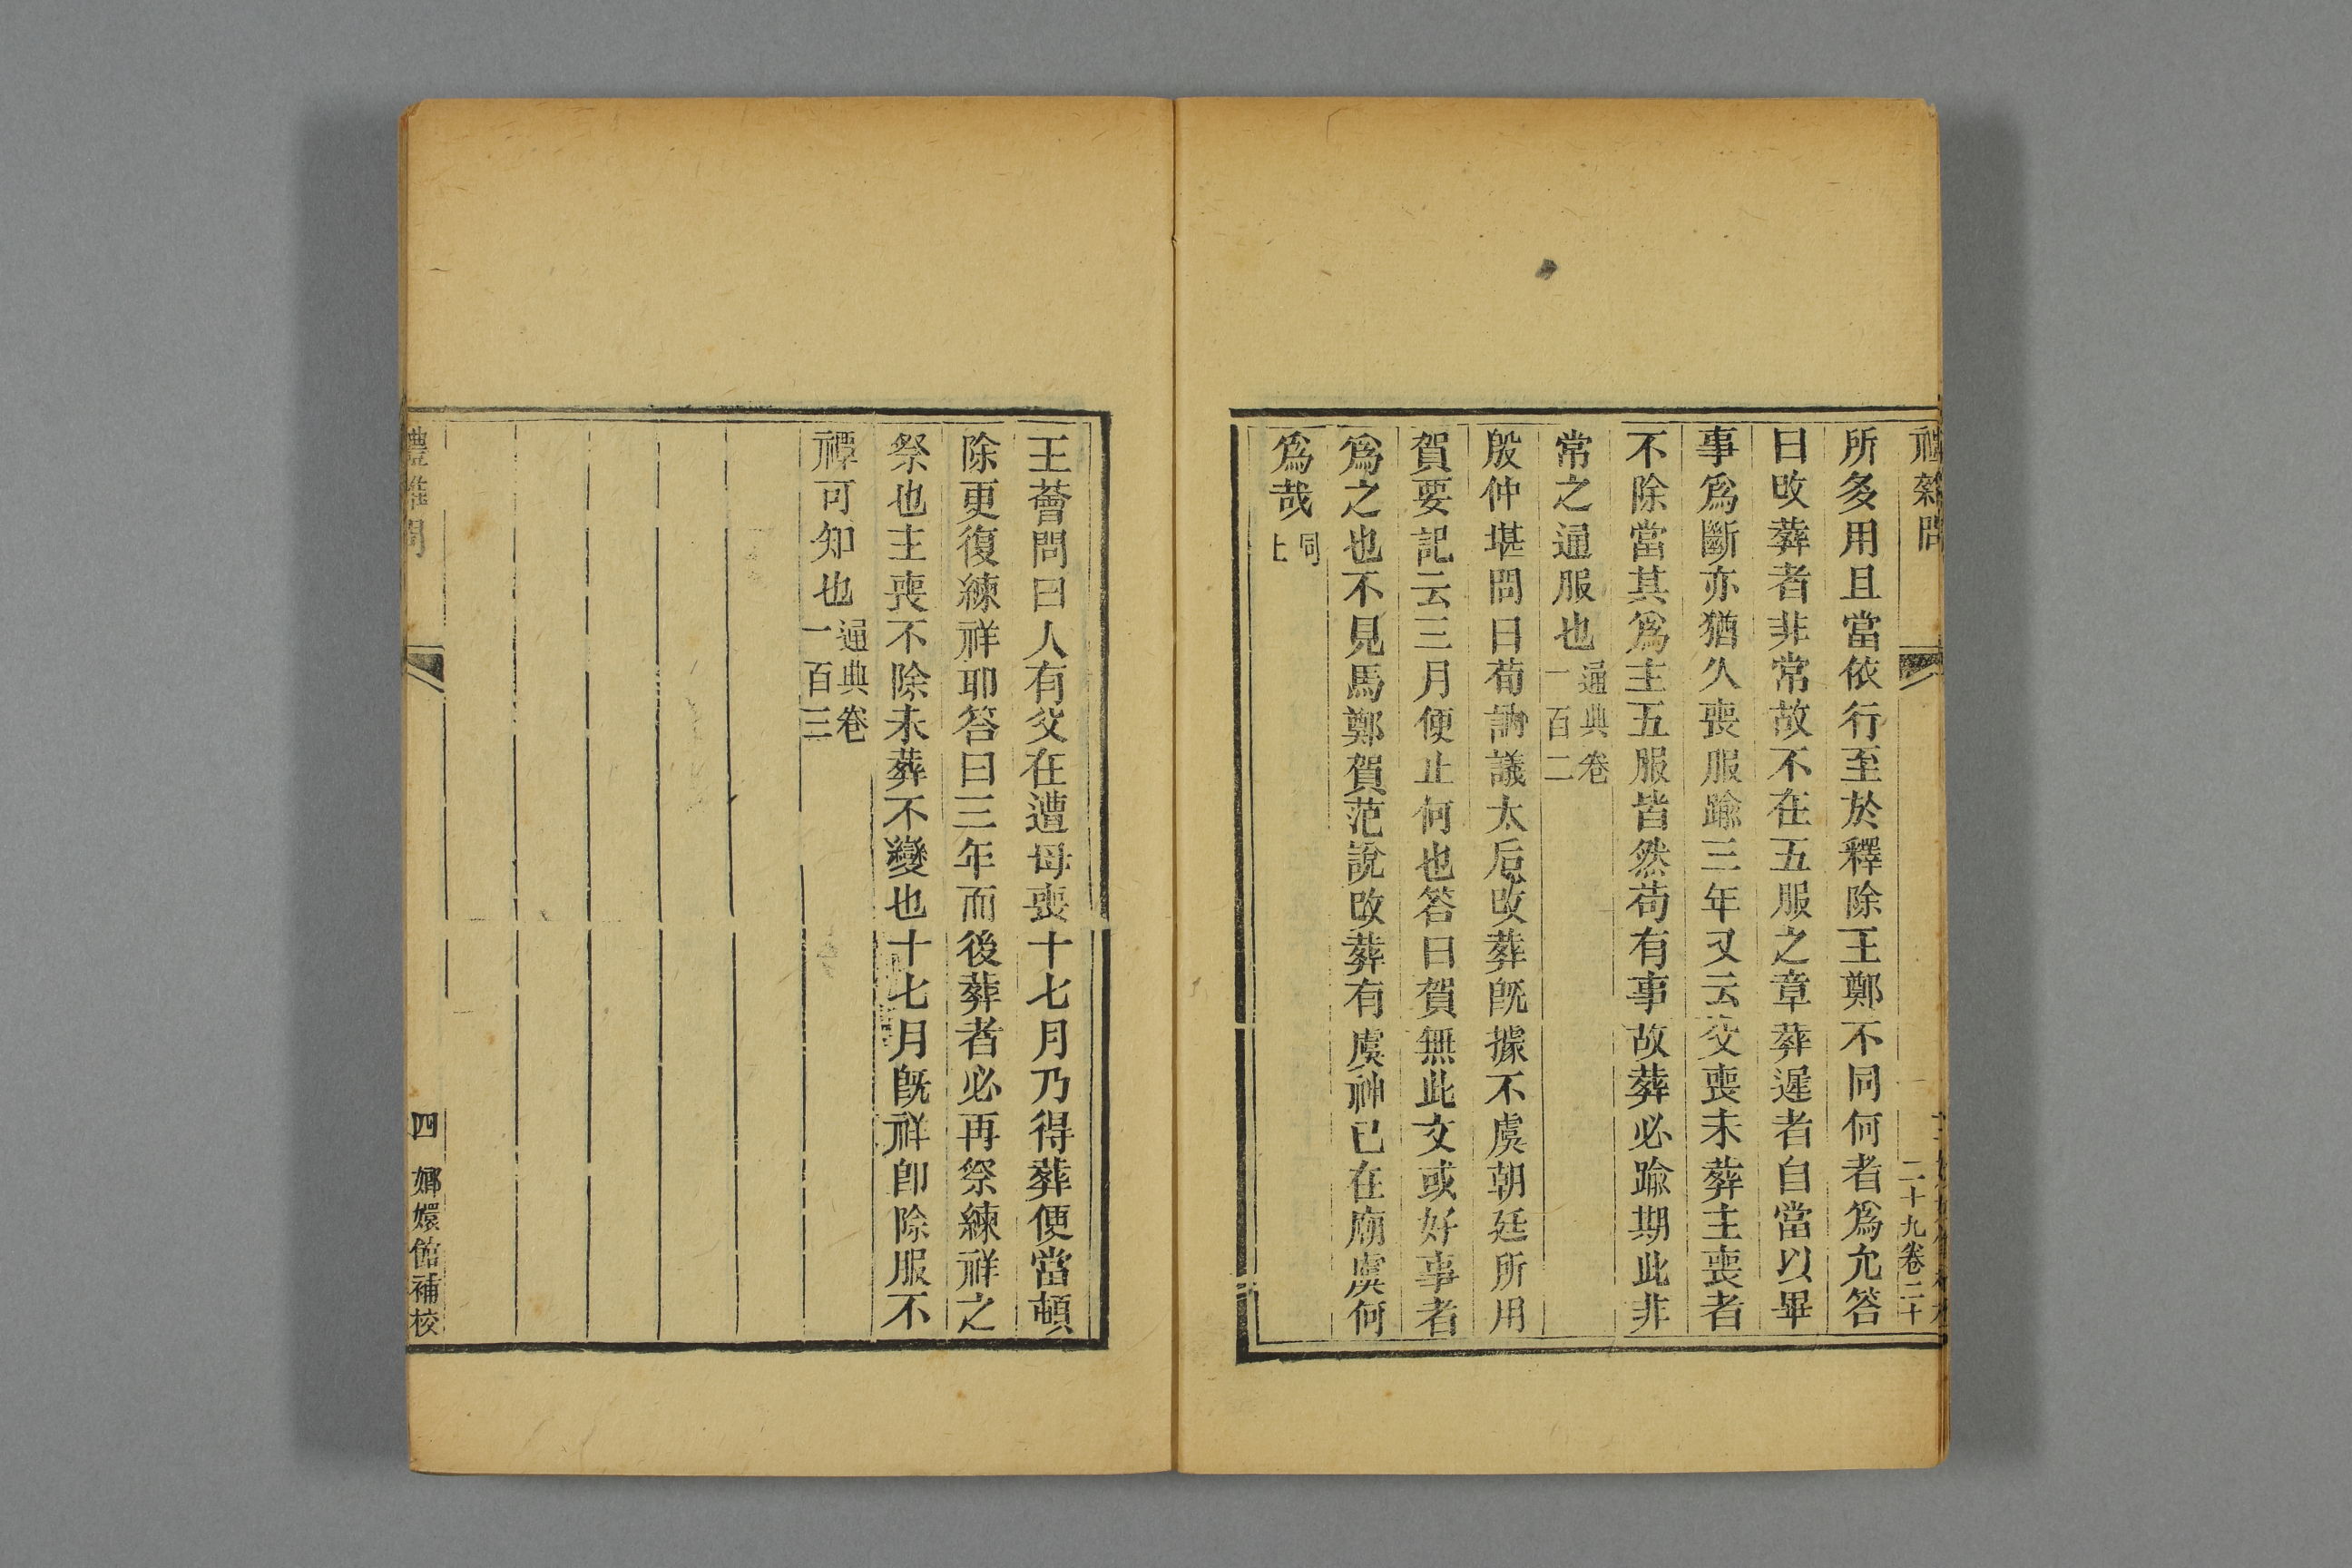 禮雜問
二十九卷二十
所多用且當依行至於釋除王鄭不同何者爲允答
曰改葬者非常故不在五服之章葬遲者自當以畢
事爲斷亦猶久喪服踰三年又云父喪未葬主喪者
不除當其爲主五服皆然苟有事故葬必踰期此非
常之通服也通典卷一百二
殷仲堪問曰荀訥議太后改葬旣據不虞朝廷所用
賀要記云三月便止何也答曰賀無此文或好事者
爲之也不見馬鄭賀范說改葬有虞神已在廟虞何
爲哉同上
王薈問曰人有父在遭母喪十七月乃得葬便當頓
除更復練祥耶答曰三年而後葬者必再祭練祥之
祭也主喪不除未葬不變也十七月旣祥卽除服不
禫可知也通典卷一百三
禮雜問
四
嫏嬛館補校